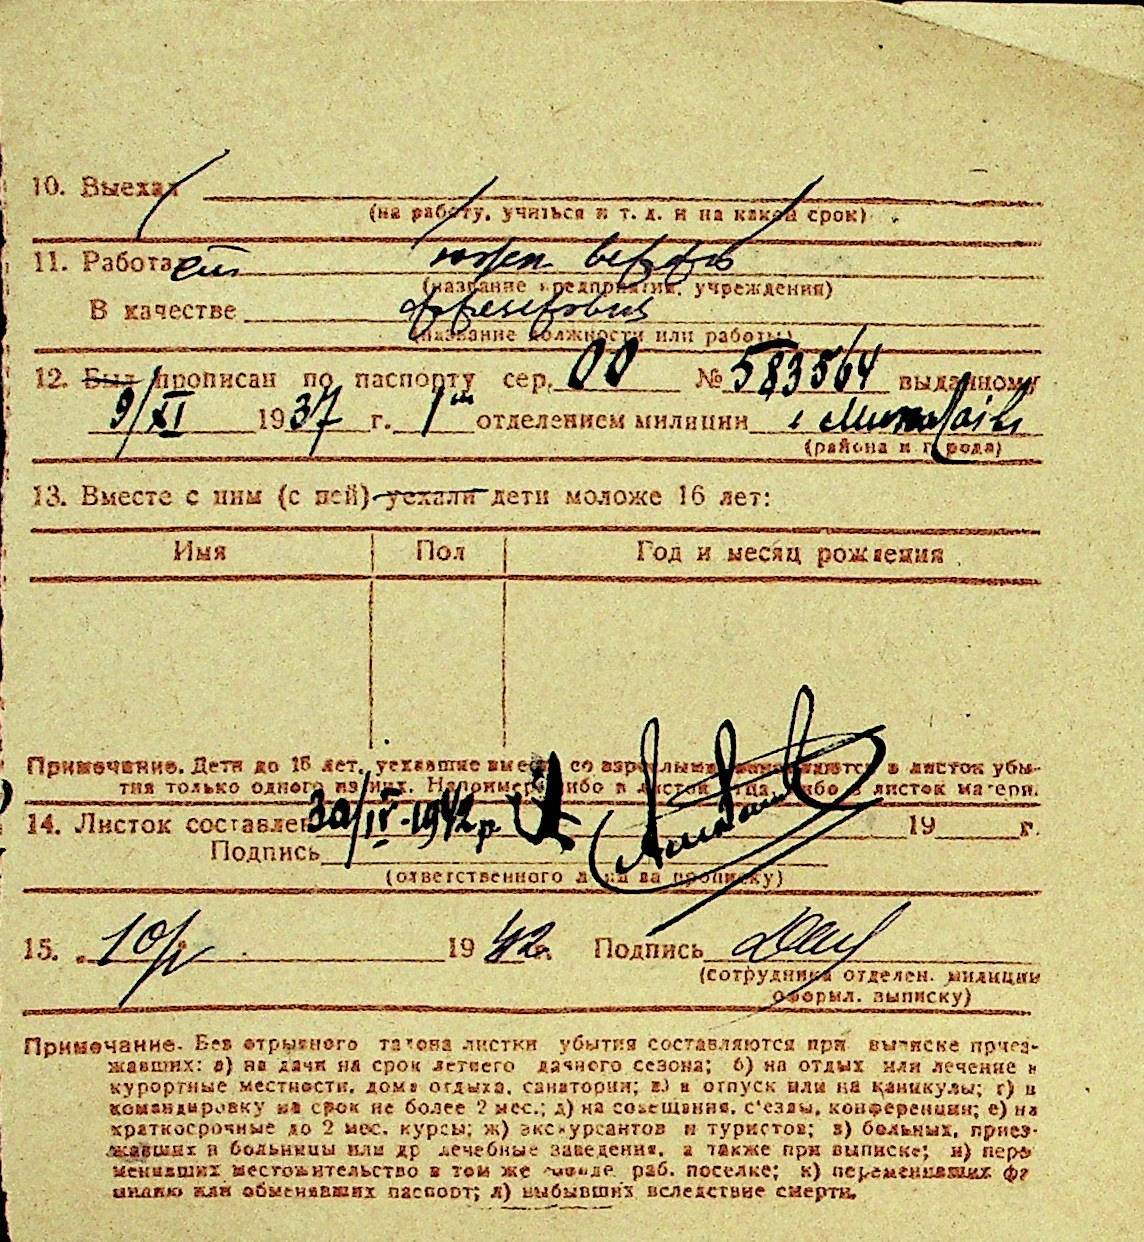 10. Выехал
(на работу, учиться и т. д. и на какой срок)
11. Работа
(название предприятия, учреждения)
В качестве
(название должности или работы)
12. Был прописан по паспорту сер. 00 № 583564 выданному
9/XI 1937 г. 1 отделением милиции
(района и города)
13. Вместе с ним (с ней) уехали дети моложе 16 лет:
Имя Пол Год и месяц рождения
Примечание. Дети до 16 лет, уехавшие вместе со взрослыми, в листок убы-
тия только одного из них. Например, либо в листок отца, либо в листок матери.
14. Листок составлен 30/IV-1942 г. 19 г.
Подпись
(ответственного лица за прописку)
15. 10/V 1942 г. Подпись
(сотрудника отделен. милиции
оформл. выписку)
Примечание. Без отрывного талона листки убытия составляются при выписке приез-
жавших: а) на дачи на срок летнего дачного сезона; б) на отдых или лечение в
курортные местности, дома отдыха, санатории; в) в отпуск или на каникулы; г) в
командировку на срок не более 2 мес.; д) на совещания, с'езды, конференции; е) на
краткосрочные до 2 мес. курсы; ж) экскурсантов и туристов; з) больных, приез-
жавших в больницы или др лечебные заведения, а также при выписке; и) пере
менивших местожительство в том же городе, раб. поселке; к) переменивших фа
милию или обменявших паспорт; л) выбывших вследствие смерти.